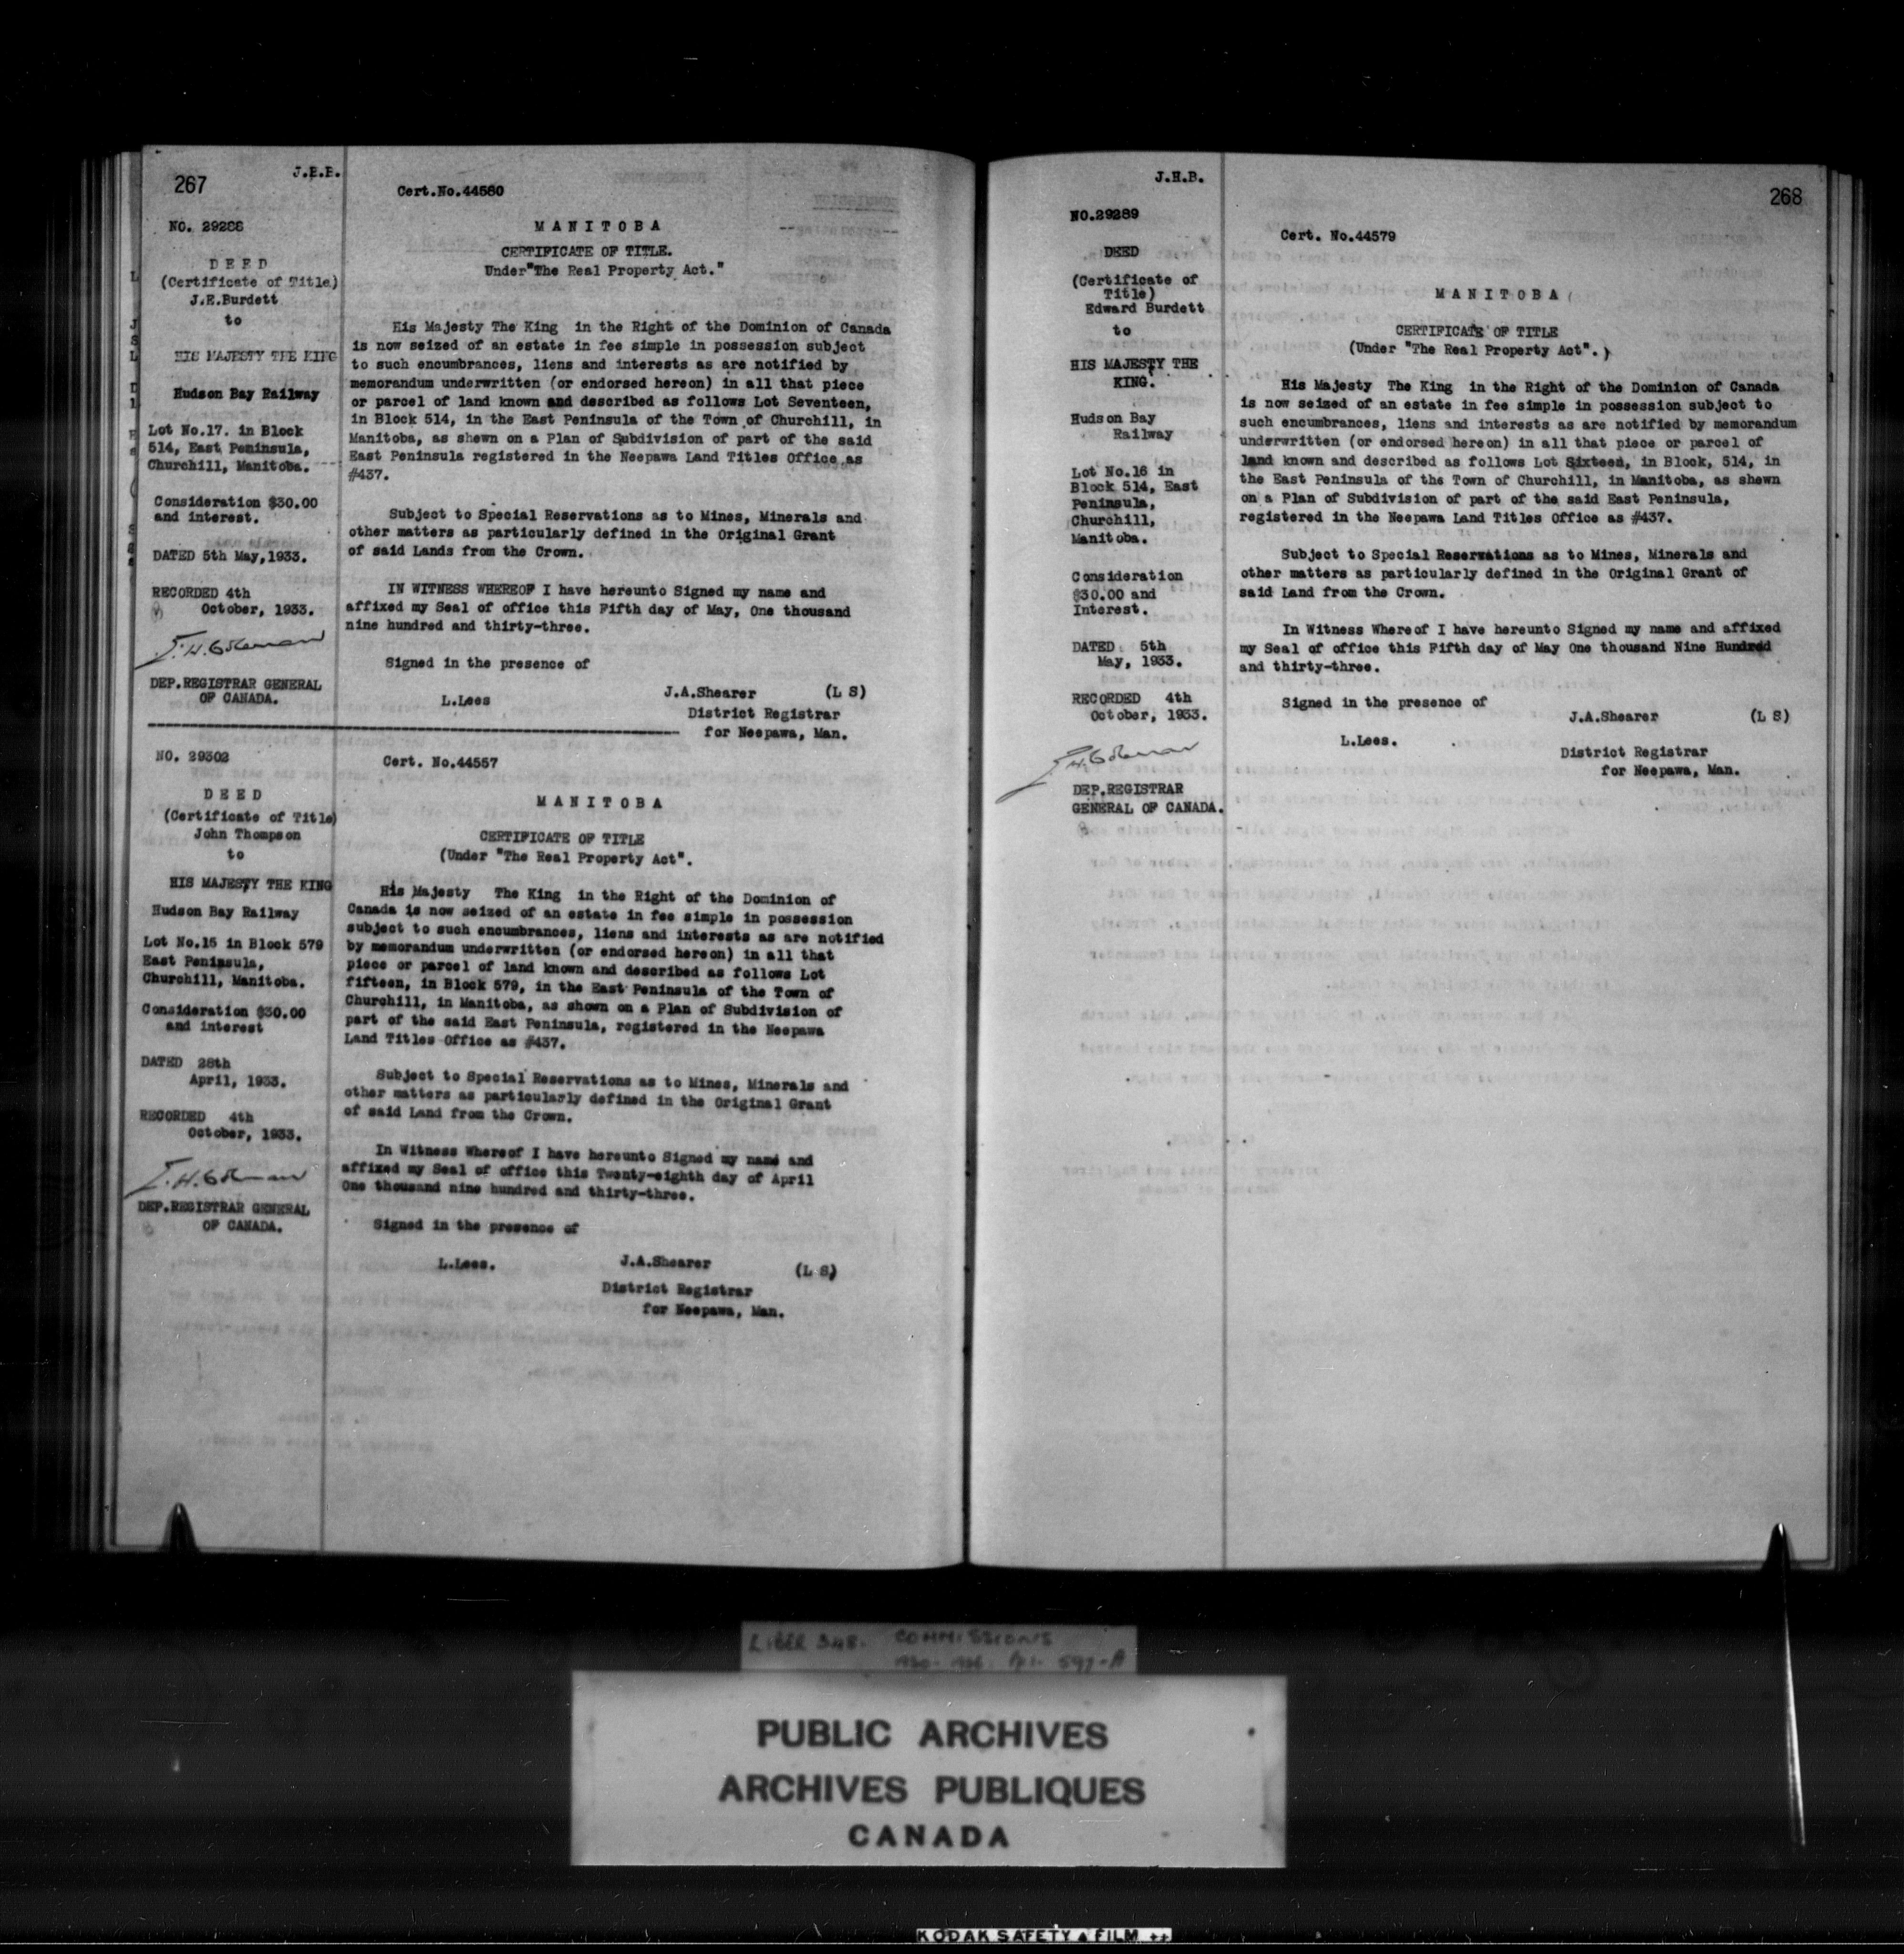 267
J.E.B.
NO. 29288
D E E D
(Certificate of Title)
J.E.Burdett
to
HIS MAJESTY THE KING
Hudson Bay Railway
Lot No.17. in Block
514, East Peninsula,
Churchill, Manitoba.
Consideration $30.00
and interest.
DATED 5th May,1933.
RECORDED 4th
October, 1933.
DEP.REGISTRAR GENERAL
OF CANADA.
Cert.No.44580
M A N I T O B A
CERTIFICATE OF TITLE.
Under"The Real Property Act."
His Majesty The King in the Right of the Dominion of Canada
is now seized of an estate in fee simple in possession subject
to such encumbrances, liens and interests as are notified by
memorandum underwritten (or endorsed hereon) in all that piece
or parcel of land known and described as follows Lot Seventeen,
in Block 514, in the East Peninsula of the Town of Churchill, in
Manitoba, as shewn on a Plan of Subdivision of part of the said
East Peninsula registered in the Neepawa Land Titles Office as
#437.
Subject to Special Reservations as to Mines, Minerals and
other matters as particularly defined in the Original Grant
of said Lands from the Crown.
IN WITNESS WHEREOF I have hereunto Signed my name and
affixed my Seal of office this Fifth day of May, One thousand
nine hundred and thirty-three.
Signed in the presence of
L.Lees
J.A.Shearer (L S)
District Registrar
for Neepawa, Man.
NO. 29302
D E E D
(Certificate of Title)
John Thompson
to
HIS MAJESTY THE KING
Hudson Bay Railway
Lot No.15 in Block 579
East Peninsula,
Churchill, Manitoba.
Consideration $30.00
and interest
DATED 28th
April, 1933.
RECORDED 4th
October, 1933.
DEP.REGISTRAR GENERAL
OF CANADA.
Cert. No.44557
M A N I T O B A
CERTIFICATE OF TITLE
(Under "The Real Property Act".
His Majesty The King in the Right of the Dominion of
Canada is now seized of an estate in fee simple in possession
subject to such encumbrances, liens and interests as are notified
by memorandum underwritten (or endorsed hereon) in all that
piece or parcel of land known and described as follows Lot
fifteen, in Block 579, in the East Peninsula of the Town of
Churchill, in Manitoba, as shown on a Plan of Subdivision of
part of the said East Peninsula, registered in the Neepawa
Land Titles Office as #437.
Subject to Special Reservations as to Mines, Minerals and
other matters as particularly defined in the Original Grant
of said Land from the Crown.
In Witness Whereof I have hereunto Signed my name and
affixed my Seal of office this Twenty-eighth day of April
One thousand nine hundred and thirty-three.
Signed in the presence of
L.Lees.
J.A.Shearer (L S)
District Registrar
for Neepawa, Man.
J.H.B.
268
NO.29289
DEED
(Certificate of
Title)
Edward Burdett
to
HIS MAJESTY THE
KING.
Hudson Bay
Railway
Lot No.16 in
Block 514, East
Peninsula,
Churchill,
Manitoba.
Consideration
$30.00 and
Interest.
DATED 5th
May, 1933.
RECORDED 4th
October, 1933.
DEP.REGISTRAR
GENERAL OF CANADA.
Cert. No.44579
M A N I T O B A
CERTIFICATE OF TITLE
(Under "The Real Property Act".)
His Majesty The King in the Right of the Dominion of Canada
is now seized of an estate in fee simple in possession subject to
such encumbrances, liens and interests as are notified by memorandum
underwritten (or endorsed hereon) in all that piece or parcel of
land known and described as follows Lot Sixteen, in Block, 514, in
the East Peninsula of the Town of Churchill, in Manitoba, as shewn
on a Plan of Subdivision of part of the said East Peninsula,
registered in the Neepawa Land Titles Office as #437.
Subject to Special Reservations as to Mines, Minerals and
other matters as particularly defined in the Original Grant of
said Land from the Crown.
In Witness Whereof I have hereunto Signed my name and affixed
my Seal of office this Fifth day of May One thousand Nine Hundred
and thirty-three.
Signed in the presence of
J.A.Shearer (L S)
L.Lees.
District Registrar
for Neepawa, Man.
LIBER 348. COMMISSIONS
PUBLIC ARCHIVES
ARCHIVES PUBLIQUES
CANADA
KODAK SAFETY FILM